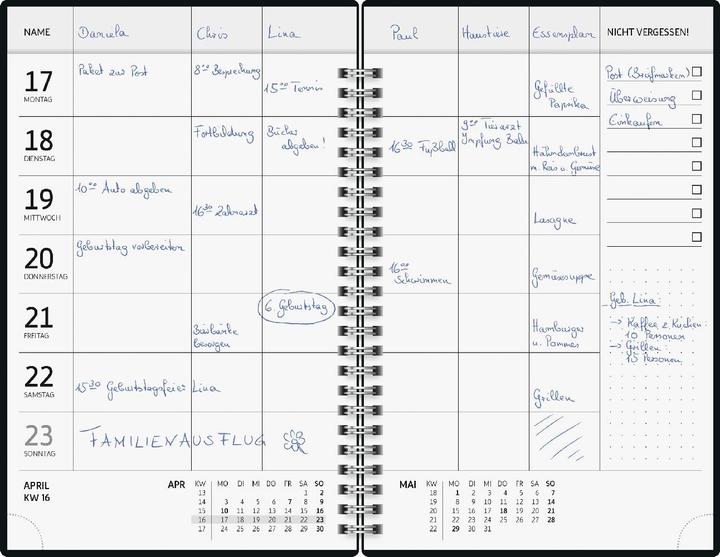 NAME Daniela Chris Lina Paul Haustiere Essensplan NICHT VERGESSEN!
17
MONTAG
Paket zur Post
8⁰⁰ Besprechung
15⁰⁰ Tennis
Gefüllte
Paprika
18
DIENSTAG
Fortbildung
Bücher
abgeben!
16³⁰ Fußball
9⁰⁰ Tierarzt
Impfung Balu
Hähnchenbrust
m. Reis u. Gemüse
19
MITTWOCH
10⁰⁰ Auto abgeben
16³⁰ Zahnarzt
Lasagne
20
DONNERSTAG
Geburtstag vorbereiten
16⁰⁰
Schwimmen
Gemüsesuppe
21
FREITAG
6. Geburtstag
Bierbänke
besorgen
Hamburger
u. Pommes
22
SAMSTAG
15³⁰ Geburtstagsfeier Lina
Grillen
23
SONNTAG
FAMILIENAUSFLUG
Post (Briefmarken)
Überweisung
Einkaufen
Geb. Lina:
→ Kaffee & Kuchen:
10 Personen
→ Grillen:
15 Personen
APRIL
KW 16
APR KW MO DI MI DO FR SA SO
13 1 2
14 3 4 5 6 7 8 9
15 10 11 12 13 14 15 16
16 17 18 19 20 21 22 23
17 24 25 26 27 28 29 30
MAI KW MO DI MI DO FR SA SO
18 1 2 3 4 5 6 7
19 8 9 10 11 12 13 14
20 15 16 17 18 19 20 21
21 22 23 24 25 26 27 28
22 29 30 31